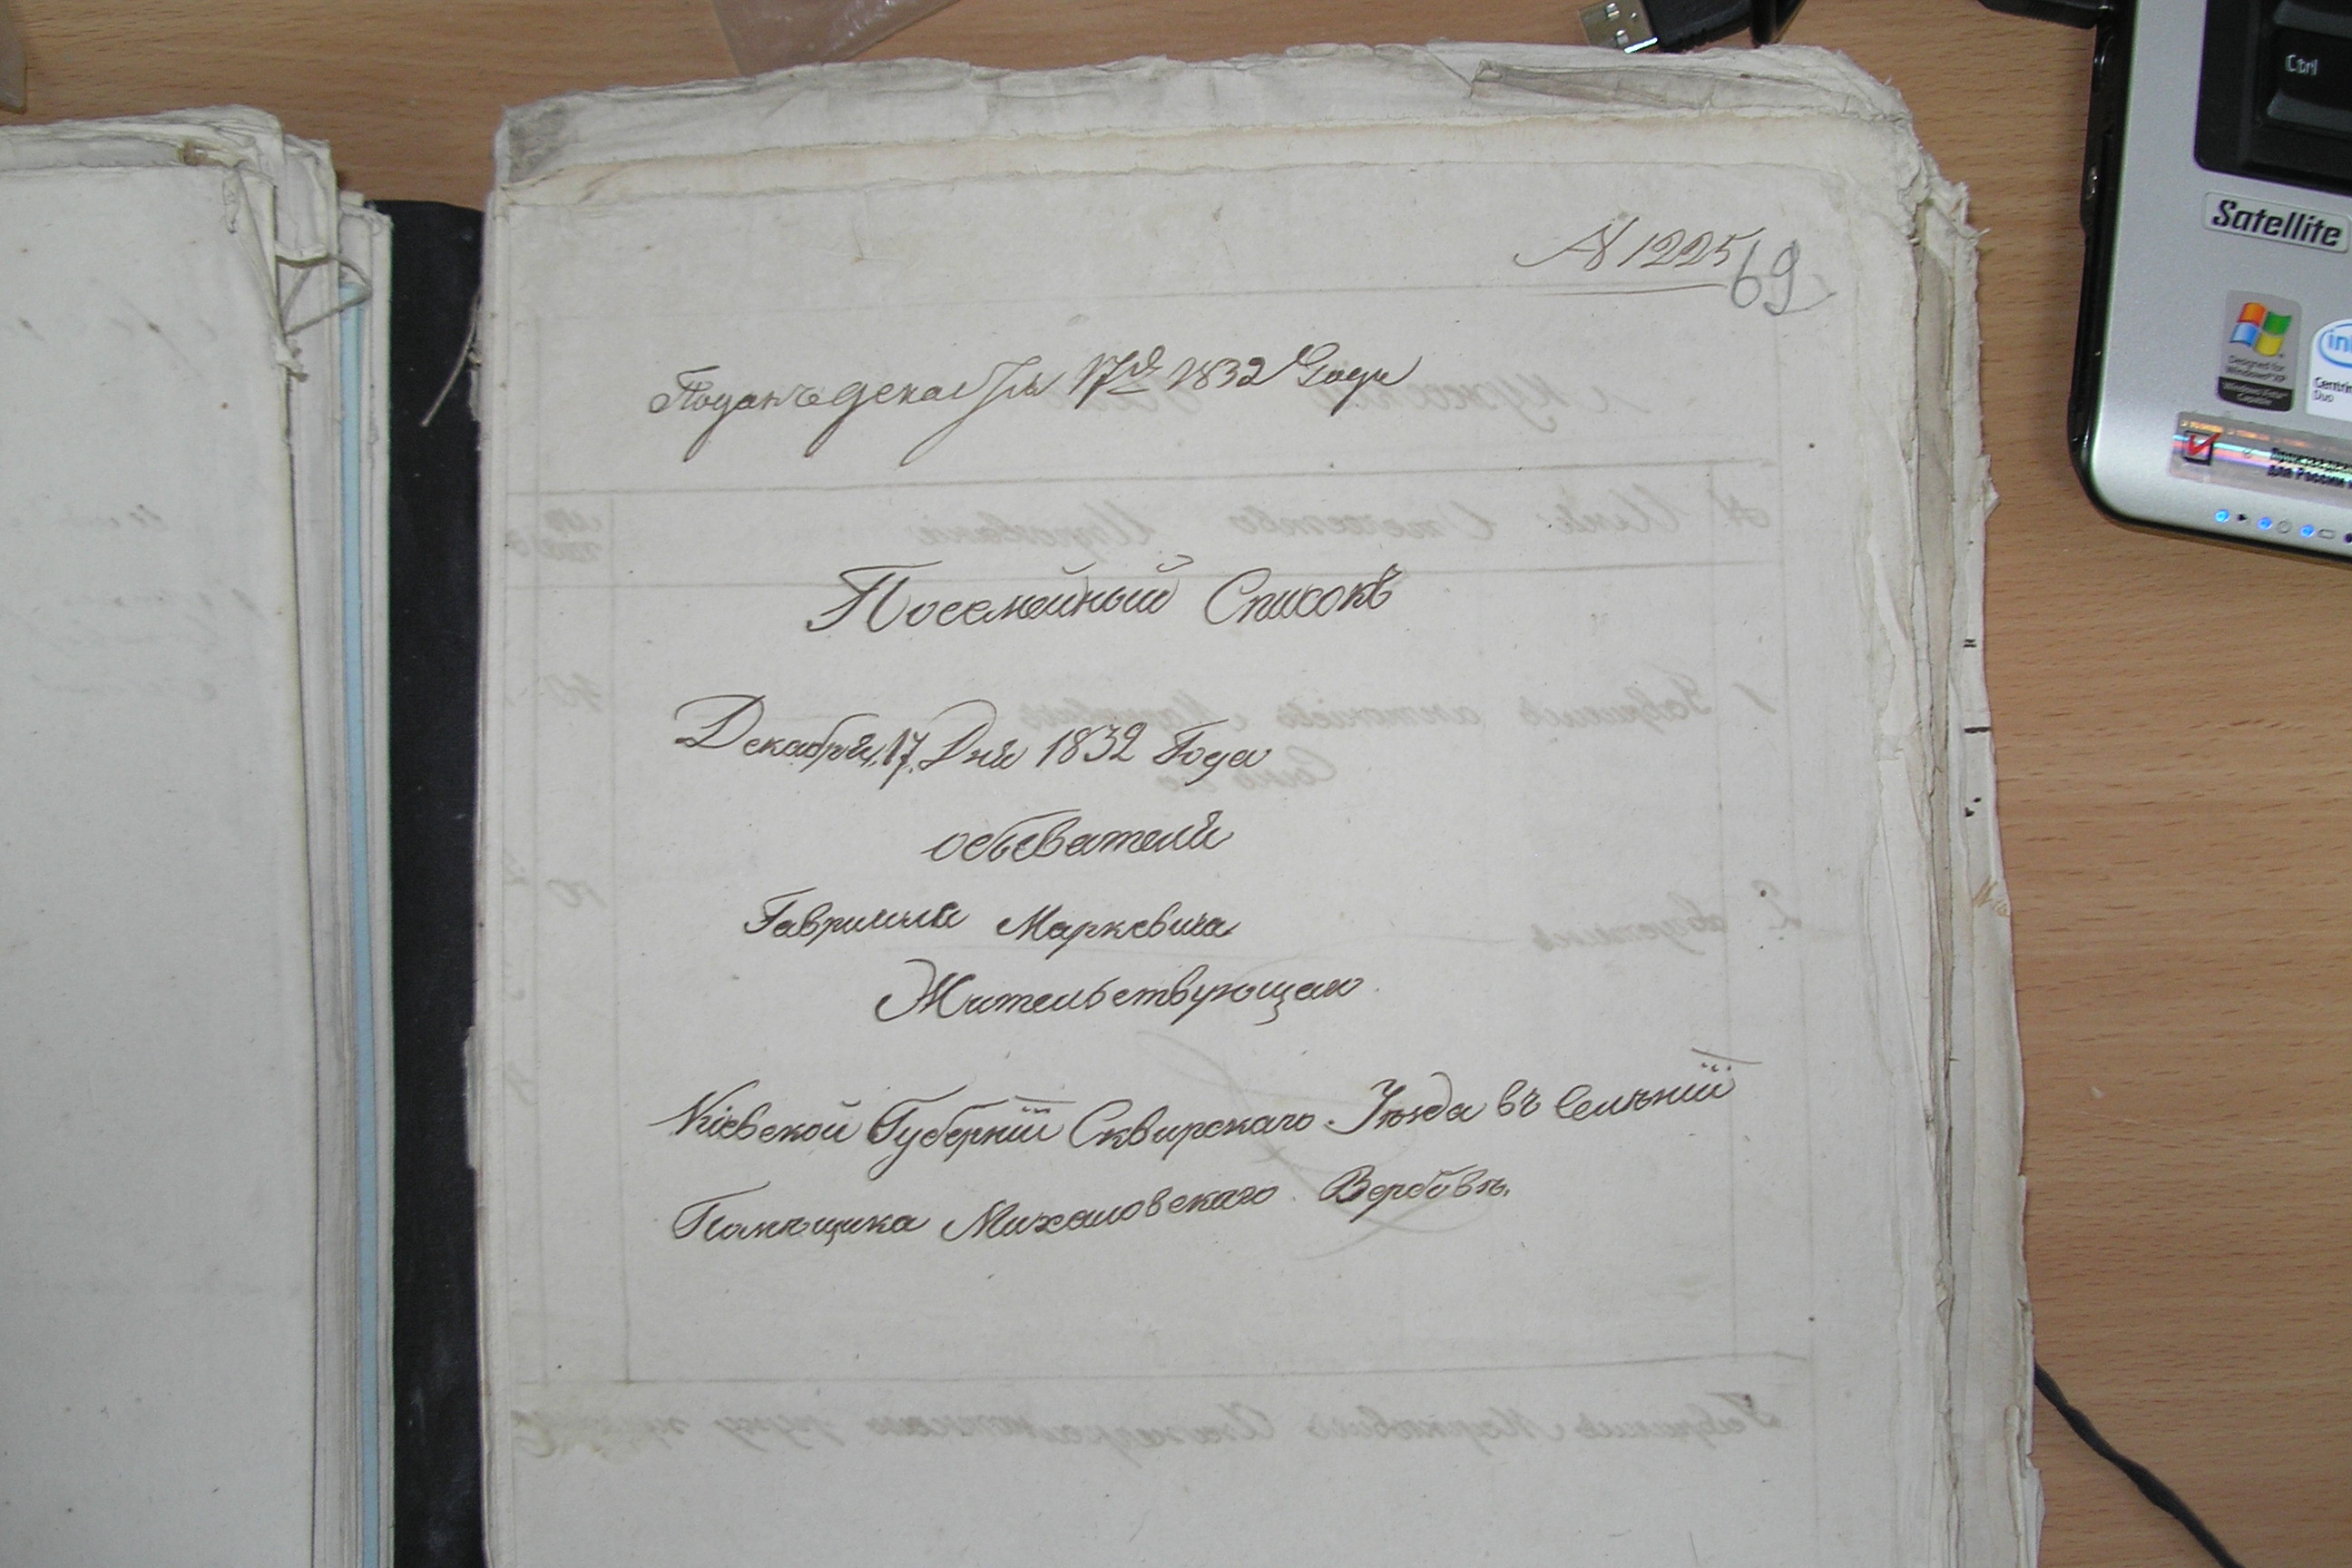 № 1225
69
Поданъ декабря 17го 1832 Года
Посемейный Списокъ
Декабря, 17. Дня 1832 Года
обыватели
Гавриила Маркевича
Жительствующаго
Кіевской Губерніи Сквирскаго Уѣзда въ Селѣніи
Помѣщика Михаловскаго Вербовѣ.
Ctrl
Satellite
Designed for
Windows XP
Windows Vista
Capable
intel
Centrino
Duo
для России